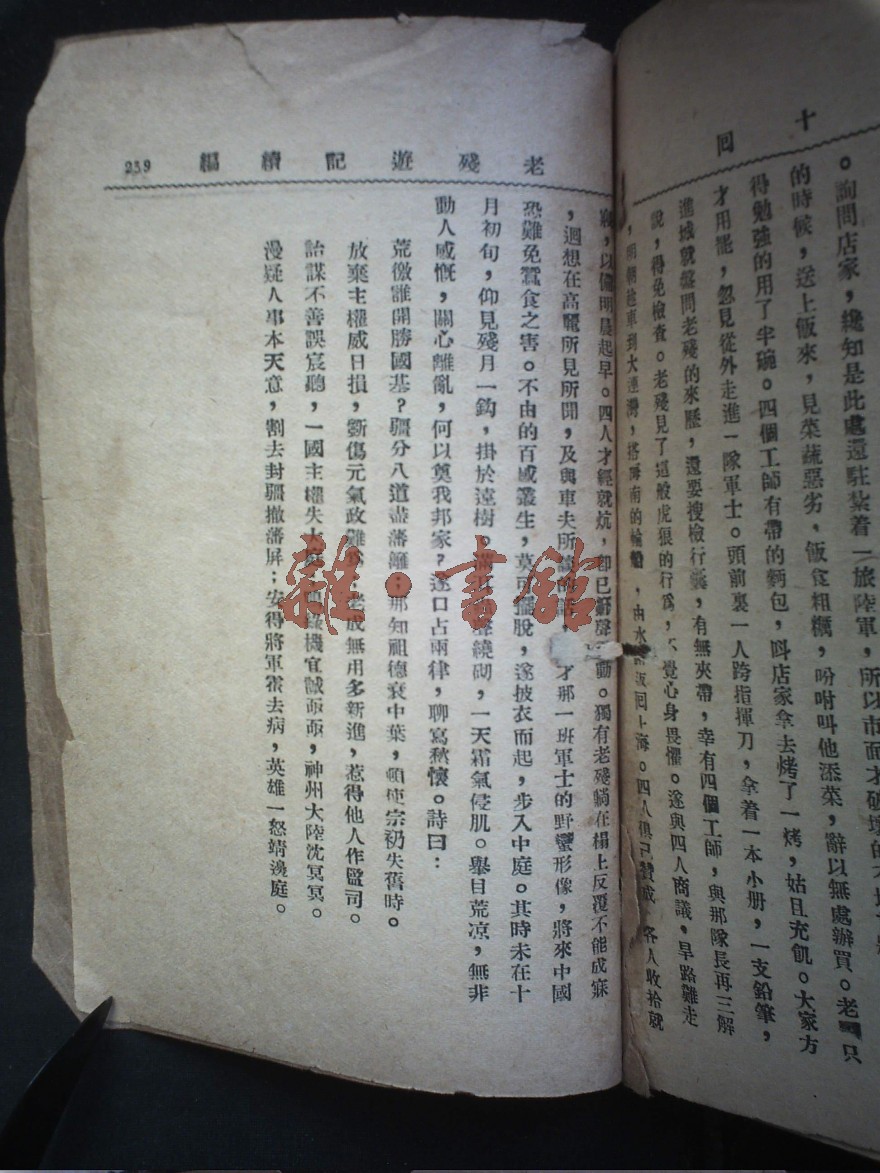 十回
。詢問店家，纔知是此處還駐紮着一旅陸軍，所以市面才破壞的
的時候，送上飯來，見菜蔬惡劣，飯食粗糲，吩咐叫他添菜，辭以無處辦買。老 只
得勉強的用了半碗。四個工師有帶的麵包，呌店家拿去烤了一烤，姑且充飢。大家方
才用罷，忽見從外走進一隊軍士。頭前裏一人跨指揮刀，拿着一本小册，一支鉛筆，
進城就盤問老殘的來歷，還要搜檢行囊，有無夾帶，幸有四個工師，與那隊長再三解
說，得免檢查。老殘見了這般虎狼的行爲，不覺心身畏懼。遂與四人商議，旱路難走
，明朝趁車到大連灣，搭海南的輪船，由水 返回上海。四人俱已贊成 各人收拾就
老殘遊記續編 239
，以備明晨起早。四人才經就炕，卽已鼾聲 動。獨有老殘躺在榻上反覆不能成寐
，迴想在高麗所見所聞，及與車夫所談的話， 才那一班軍士的野蠻形像，將來中國
恐難免蠶食之害。不由的百感叢生，莫可擺脫，遂披衣而起，步入中庭。其時未在十
月初旬，仰見殘月一鈎，掛於遠樹。滿 繞砌，一天霜氣侵肌。舉目荒凉，無非
動人感慨，關心離亂，何以奠我邦家？遂口占兩律，聊寫愁懷。詩曰：
荒徼誰開勝國基？疆分八道盡藩籬；那知祖德衰中葉，頓使宗礽失舊時。
放棄主權威日損，斵傷元氣政難爲；老成無用多新進，惹得他人作監司。
詒謀不善誤宸聽，一國主權失大庭； 機宜誠 ，神州大陸沈冥冥。
漫疑人事本天意，割去封疆撤藩屏；安得將軍霍去病，英雄一怒靖邊庭。
雜·書館